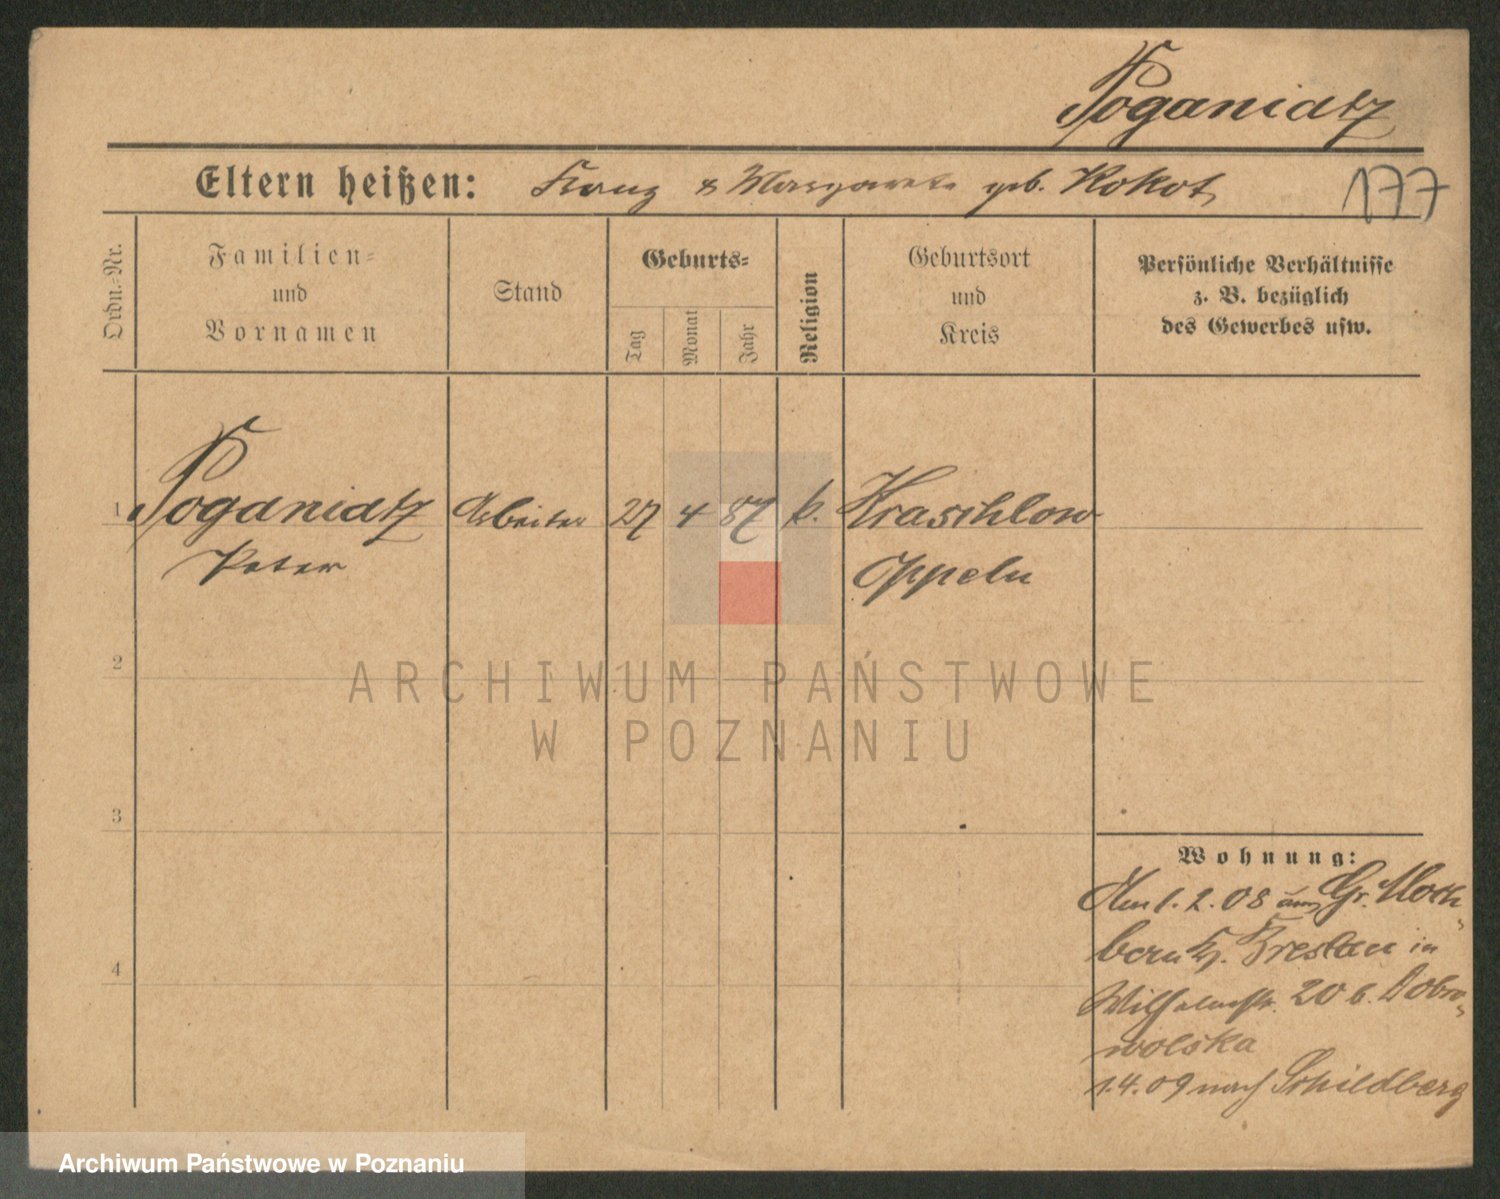 Poganiatz
Eltern heißen: Franz & Margarete geb. Kokot
177
Ordn.-Nr.
Familien-
und
Vornamen
Stand
Geburts-
Tag
Monat
Jahr
Religion
Geburtsort
und
Kreis
Persönliche Verhältnisse
z. B. bezüglich
des Gewerbes usw.
1 Poganiatz Arbeiter 27 4 87 k. Kraschlow
Peter Oppeln
2
ARCHIWUM PAŃSTWOWE
W POZNANIU
3
4
Wohnung:
Am 1. 2. 08 aus Gr. Moch-
bern Kr. Breslau in
Wilhelmstr. 20 b. Dobro-
wolska
1.4.09 nach Schildberg
Archiwum Państwowe w Poznaniu